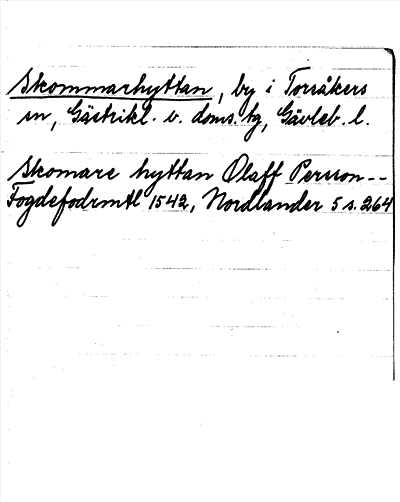 Skommarhyttan, by i Torsåkers
sn, Gästrikl. v. doms. tg, Gävleb. l.
Skomare hyttan Olaff Persson--
Fogdefodrmtl 1542, Nordlander 5 s. 264